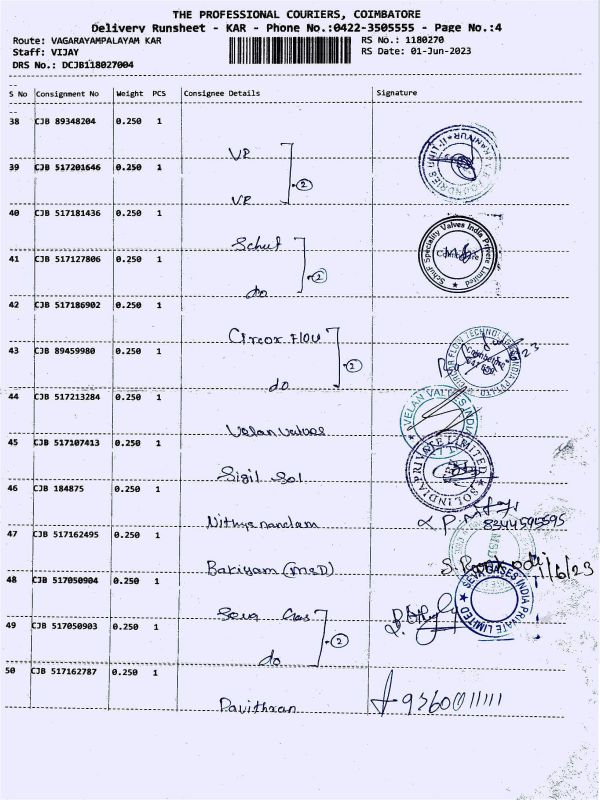 THE PROFESSIONAL COURIERS, COIMBATORE
Delivery Runsheet - KAR - Phone No.:0422-3505555 - Page No.:4
Route: VAGARAYAMPALAYAM KAR RS No.: 1180270
Staff: VIJAY RS Date: 01-Jun-2023
DRS No.: DCJB118027004
S No Consignment No Weight PCS Consignee Details Signature
38 CJB 89348204 0.250 1
VP
39 CJB 517201646 0.250 1
2
VP
40 CJB 517181436 0.250 1
Schuf
Schuf Speciality Valves India Private Limited
Coimbatore
41 CJB 517127806 0.250 1
2
do
42 CJB 517186902 0.250 1
Circor FLOW
43 CJB 89459980 0.250 1
2
do
44 CJB 517213284 0.250 1
Velan valves
VELAN VALVES INDIA
45 CJB 517107413 0.250 1
Sigil Sol
SOL INDIA PRIVATE LIMITED
46 CJB 184875 0.250 1
Nithyanandam
8344595595
47 CJB 517162495 0.250 1
Bakiyam (MSD)
MSD
1/6/23
48 CJB 517050904 0.250 1
Seva Gas
SEVA GASES INDIA PRIVATE LIMITED
49 CJB 517050903 0.250 1
2
do
50 CJB 517162787 0.250 1
Pavithran
9360011111